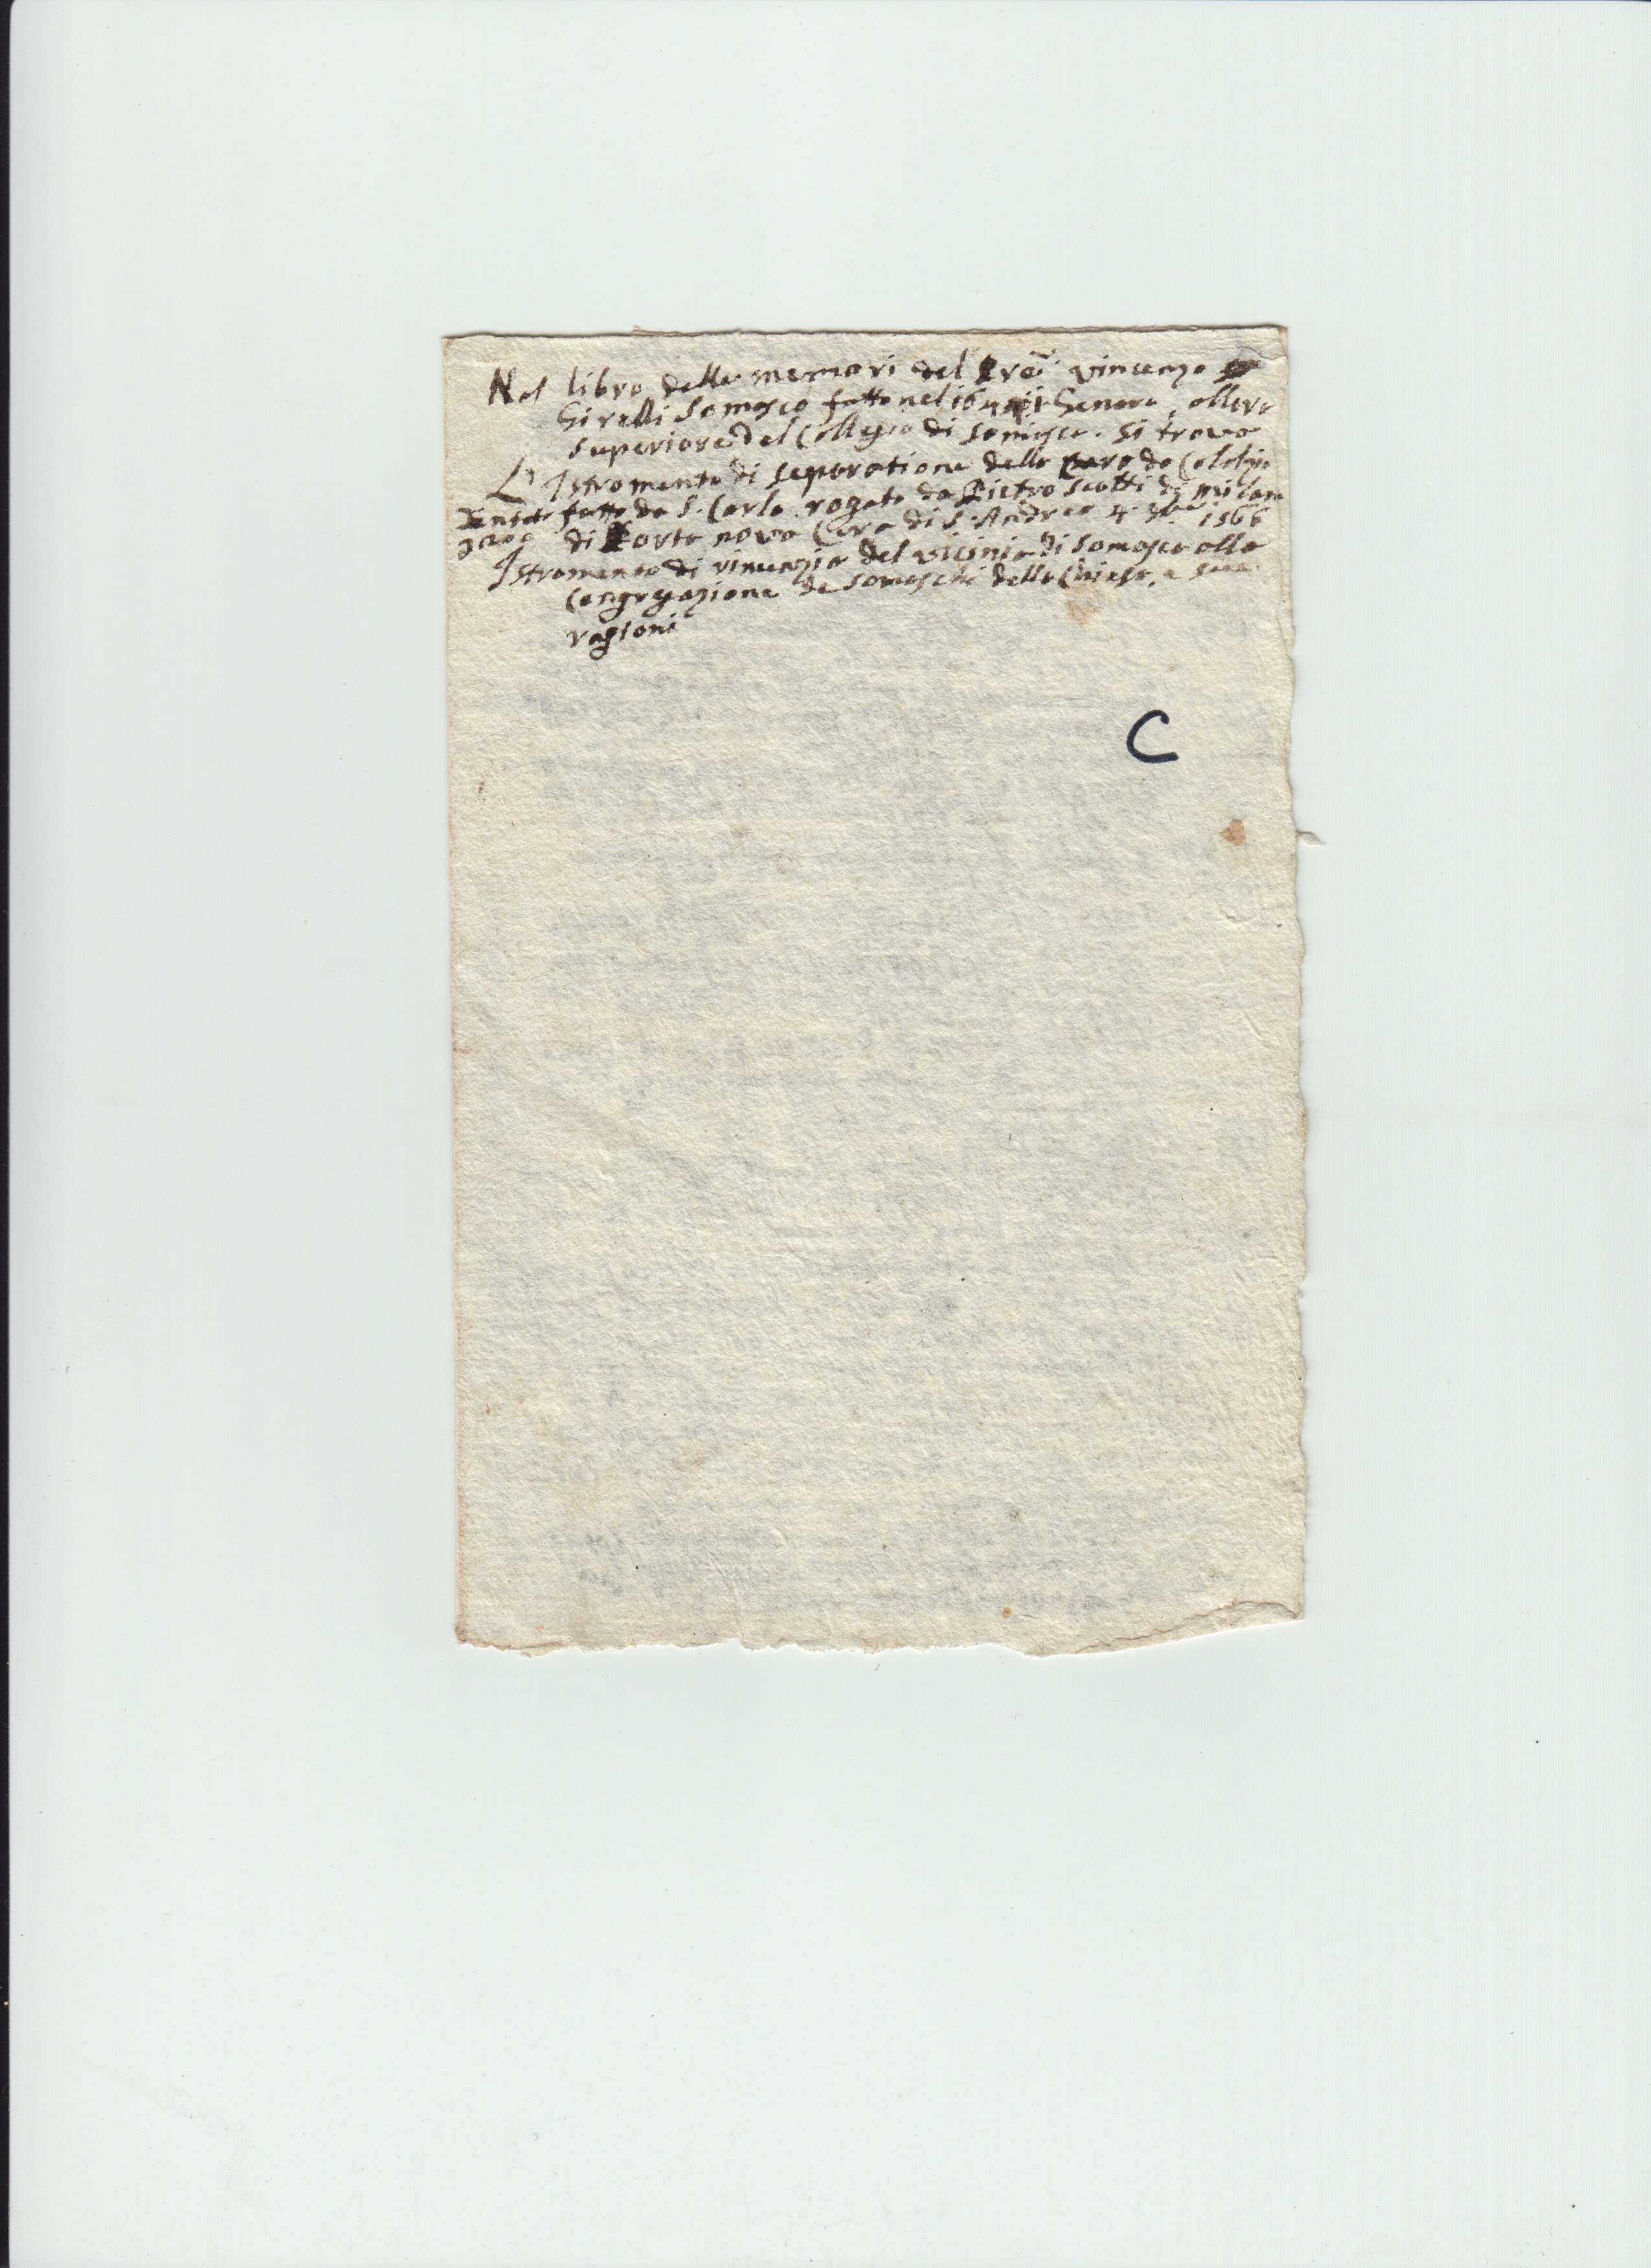 Nel libro delle memori del Pre Vincenzo
Girelli Somasco fatto nel 164 Genaro, allora
superiore del Collegio di Somasca. Si trova
L'Istromento di separatione della Cura da Calolzio
fatto da S. Carlo rogato da Pietro Scotti di Milano
di Porta nova Cura di S. Andrea 4 1566
Istromento di rinunzia del vicinio di Somasca alla
Congregazione de Somaschi della Chiesa, e sue
ragioni
C